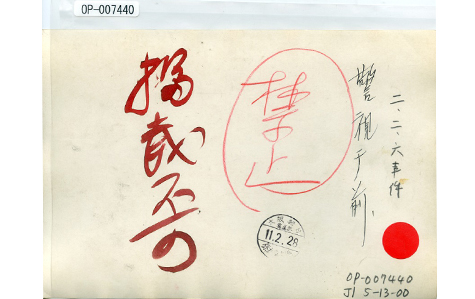 OP-007440
二、二、六事件
警視庁前、
禁止
掲載不可
11.2.28
OP-007440
J1 5-13-00